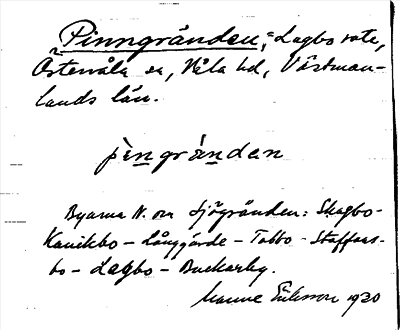 Pinngränden, = Lagbo rote,
Östervåla sn, Våla hd, Västman-
lands län.
pìngrándan
Byarna N. om Sjögränden: Skogbo-
Kanikbo - Långgärde - Tobbo - Staffans-
bo - Lagbo - Buckarby.
Manne Eriksson 1920